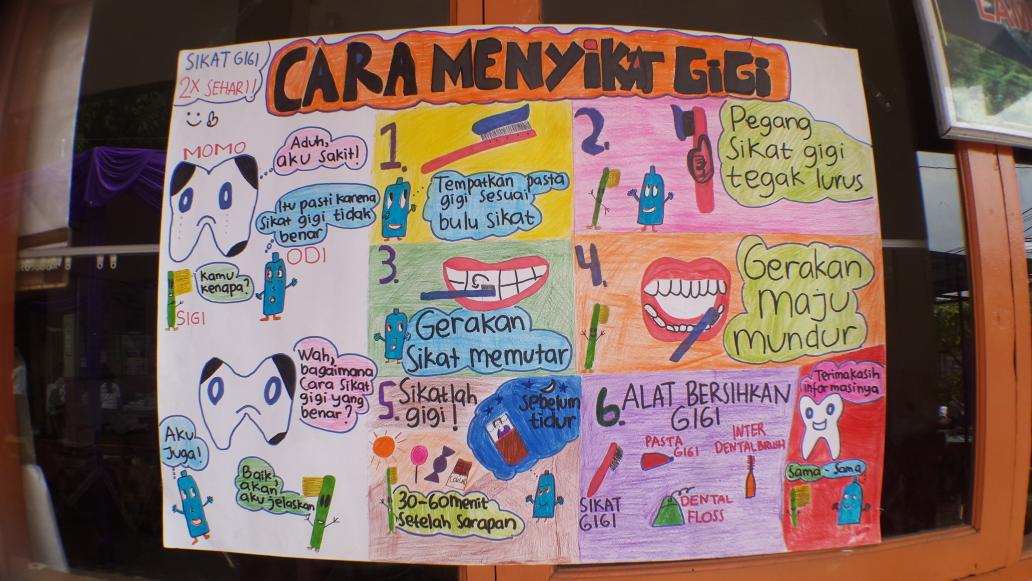 SIKAT GIGI
2X SEHARI!
CARA MENYIKAT GIGI
MOMO
Aduh,
aku sakit!
Itu pasti karena
sikat gigi tidak
benar
ODI
kamu
kenapa?
SIGI
Wah,
bagaimana
Cara sikat
gigi yang
benar?
Aku
Juga!
Baik,
akan
aku jelaskan
1.
Tempatkan pasta
gigi sesuai
bulu sikat
2.
Pegang
Sikat gigi
tegak lurus
3.
Gerakan
Sikat memutar
4.
Gerakan
maju
mundur
5.
Sikatlah
gigi!
Sebelum
tidur
30-60 menit
Setelah Sarapan
6.
ALAT BERSIHKAN
GIGI
SIKAT
GIGI
PASTA
GIGI
INTER
DENTALBRUSH
DENTAL
FLOSS
Terimakasih
informasinya
Sama-Sama